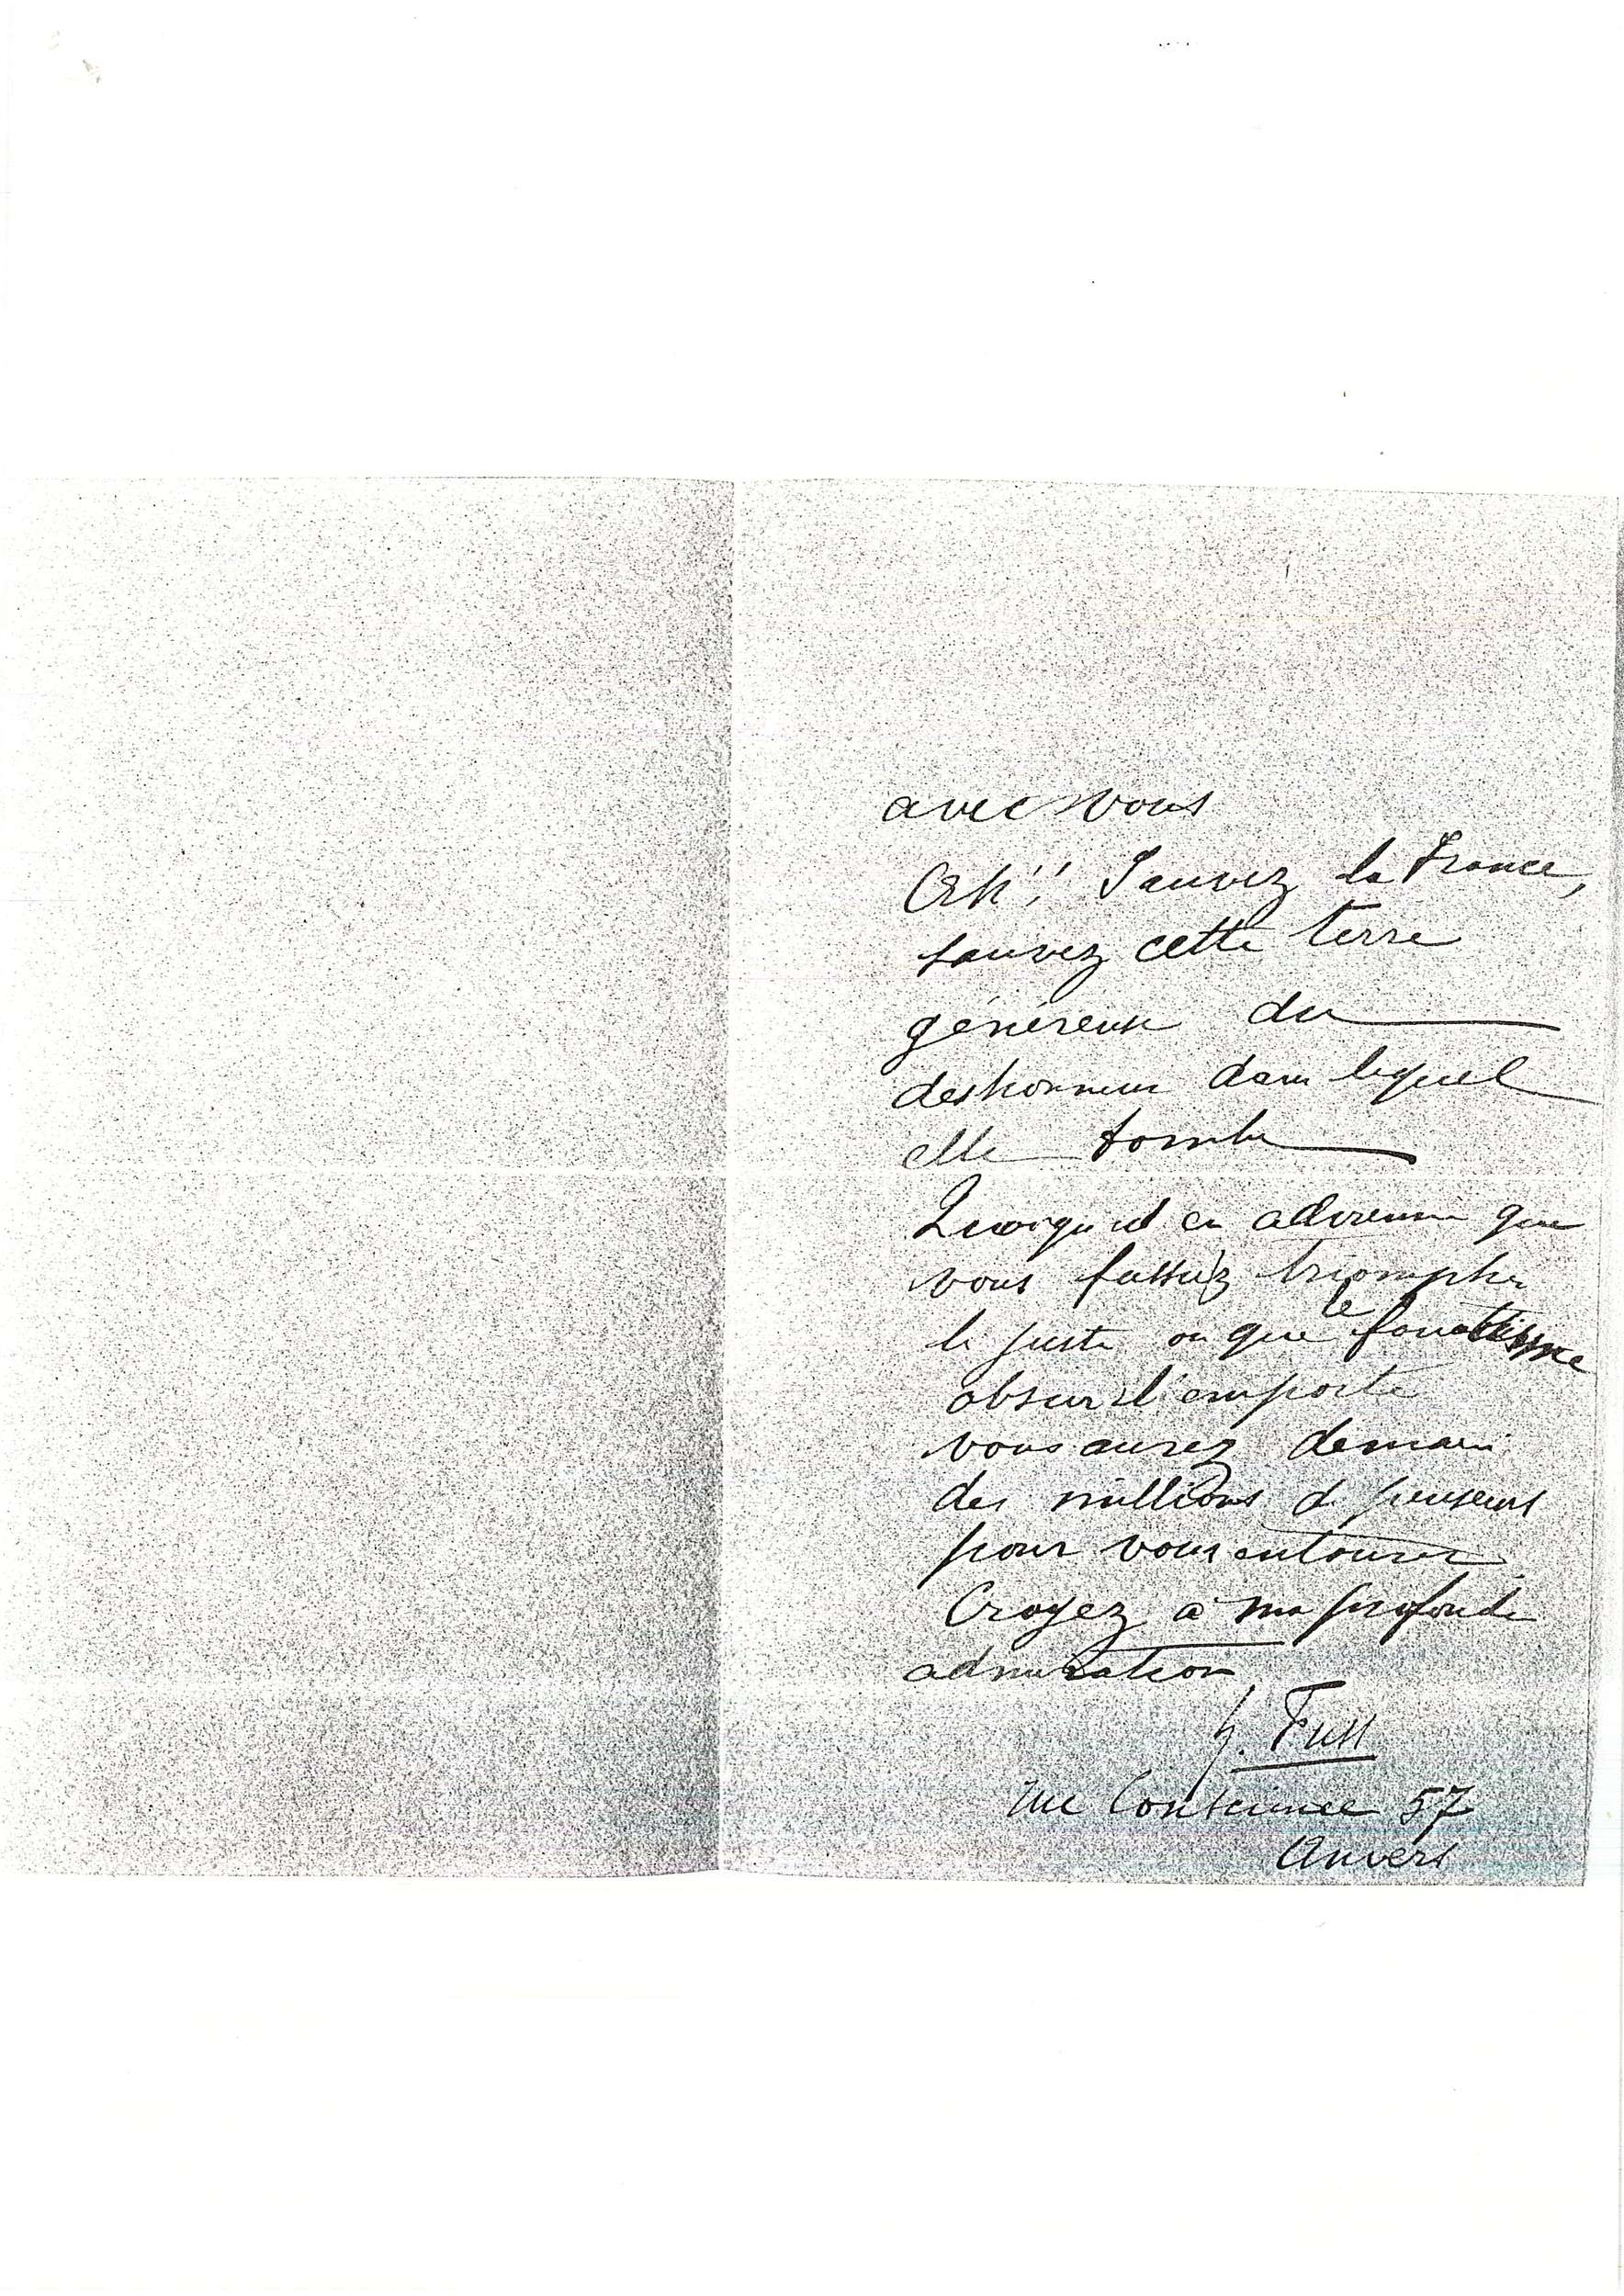 avec vous
Ah! Sauvez la France,
sauvez cette terre
généreuse du
deshonneur dans lequel
elle tombe
Quoiqu'il en advienne que
vous fassiez triompher
le juste ou que le fanatisme
obscur l'emporte
vous aurez demain
des millions de penseurs
pour vous entourer.
Croyez à ma profonde
admiration
Fuss
rue Conscience 57
Anvers